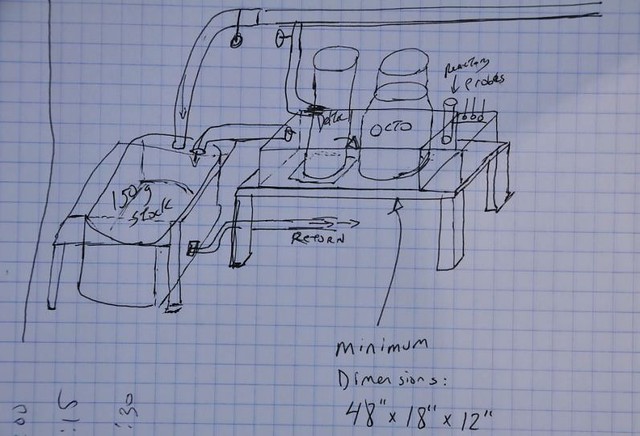 Reactors
Probes
OCTO
150g
stock
RETURN
minimum
Dimensions:
48" x 18" x 12"
:15
:30